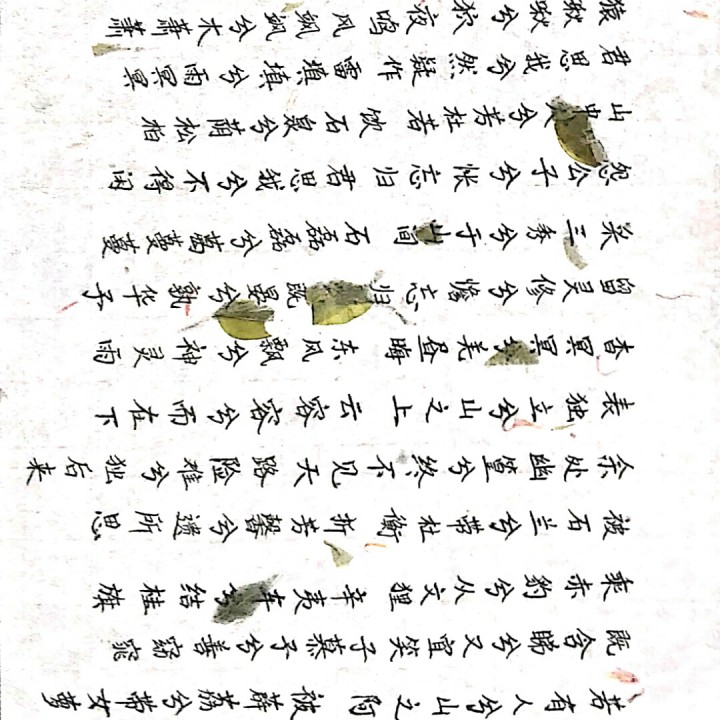 若有人兮山之阿 被薜荔兮带女萝
既含睇兮又宜笑 子慕予兮善窈窕
乘赤豹兮从文狸 辛夷车兮结桂旗
被石兰兮带杜衡 折芳馨兮遗所思
余处幽篁兮终不见天 路险难兮独后来
表独立兮山之上 云容容兮而在下
杳冥冥兮羌昼晦 东风飘兮神灵雨
留灵修兮憺忘归 既晏兮孰华予
采三秀兮于山间 石磊磊兮葛蔓蔓
怨公子兮怅忘归 君思我兮不得闲
山中人兮芳杜若 饮石泉兮荫松柏
君思我兮然疑作 雷填填兮雨冥冥
猿啾啾兮狖夜鸣 风飒飒兮木萧萧